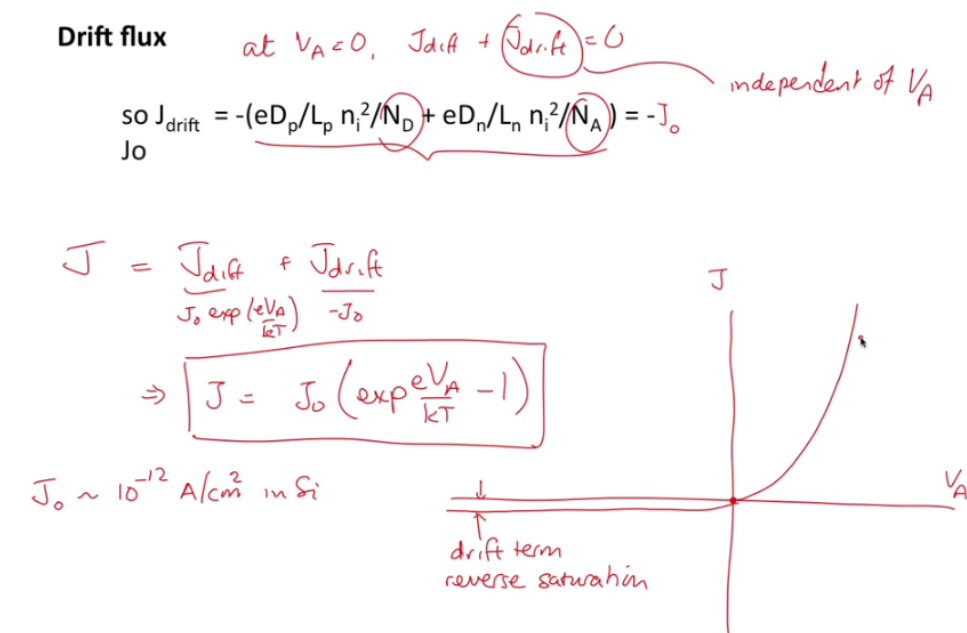 Drift flux
at V_A = 0, J_diff + J_drift = 0
independent of V_A
so J_drift = -(eD_p/L_p n_i²/N_D + eD_n/L_n n_i²/N_A) = -J_o
Jo
J = J_diff + J_drift
J_o exp(eV_A/kT) -J_o
⇒ J = J_o (exp eV_A/kT - 1)
J
J_o ~ 10^-12 A/cm² in Si
V_A
drift term
reverse saturation